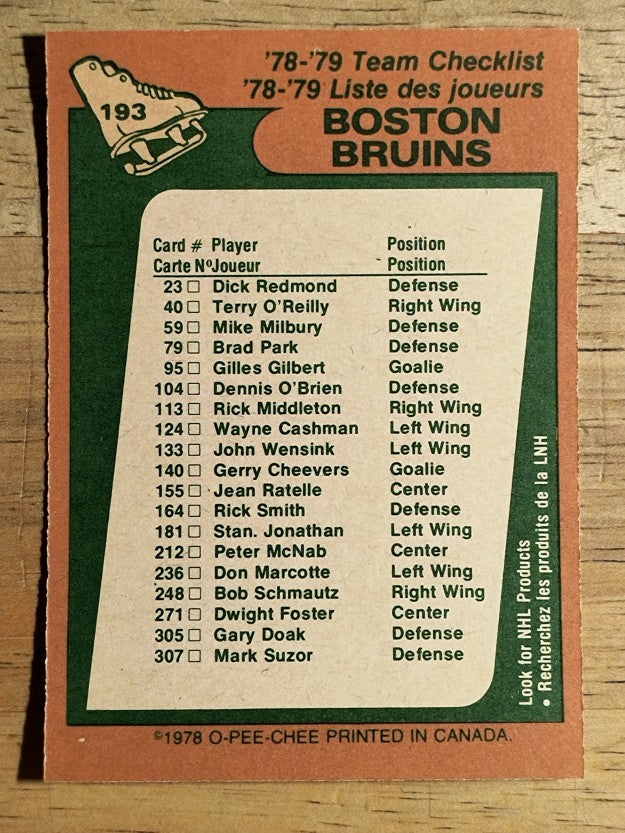 193
'78-'79 Team Checklist
'78-'79 Liste des joueurs
BOSTON
BRUINS
Card # Player Position
Carte Nº Joueur Position
23 □ Dick Redmond Defense
40 □ Terry O'Reilly Right Wing
59 □ Mike Milbury Defense
79 □ Brad Park Defense
95 □ Gilles Gilbert Goalie
104 □ Dennis O'Brien Defense
113 □ Rick Middleton Right Wing
124 □ Wayne Cashman Left Wing
133 □ John Wensink Left Wing
140 □ Gerry Cheevers Goalie
155 □ Jean Ratelle Center
164 □ Rick Smith Defense
181 □ Stan. Jonathan Left Wing
212 □ Peter McNab Center
236 □ Don Marcotte Left Wing
248 □ Bob Schmautz Right Wing
271 □ Dwight Foster Center
305 □ Gary Doak Defense
307 □ Mark Suzor Defense
Look for NHL Products
• Recherchez les produits de la LNH
©1978 O-PEE-CHEE PRINTED IN CANADA.